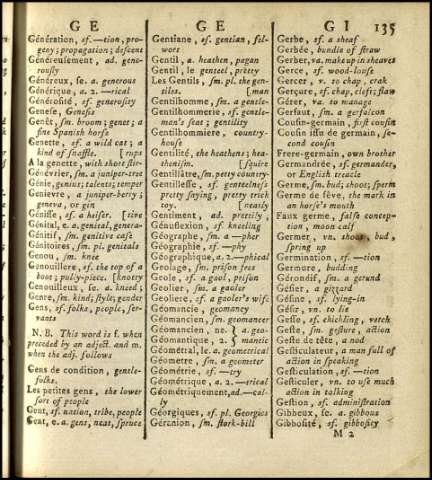 G E
G E
G I 135
Génération, sf.—tion, pro-
geny; propagation; descent
Généreusement, ad. generously
rously
Généreux, se. a. generous
Générique, a. 2. —rical
Générosité, sf. generosity
Genese, Genesis
Genêt, sm. broom; genet; a
fine Spanish horse
Genette, sf. a wild cat; a
kind of snaffle. [rups
A la genette, with short stir-
Génévrier, sm. a juniper-tree
Génie, genius; talents; temper
Genievre, a juniper-berry;
geneva, or gin
Génisse, sf. a heifer. [tive
Génital, e. a. genital, genera-
Génitif, sm. genitive case
Génitoires, sm. pl. genitals
Genou, sm. knee
Genouillere, sf. the top of a
boot; pully-piece. [knotty
Genouilleux, se. a. kneed;
Genre, sm. kind; style; gender
Gens, sf. folks, people, ser-
vants
N. B. This word is f. when
preceded by an adject. and m.
when the adj. follows
Gens de condition, gentle-
folks.
Les petites gens, the lower
sort of people
Gent, sf. nation, tribe, people
Gent, e. a. gent, neat, spruce
Gentiane, sf. gentian, fel-
wort
Gentil, a. heathen, pagan
Gentil, le genteel, pretty
Les Gentils, sm. pl. the gen-
tiles. [man
Gentilhomme, sm. a gentle-
Gentilhommerie, sf. gentle-
man's seat; gentility
Gentilhommiere, country-
house
Gentilité, the heathens; hea-
thenism. [squire
Gentillâtre, sm. petty country-
Gentillesse, sf. genteelness
pretty saying, pretty trick
toy. [nearly
Gentiment, ad. prettily,
Génuflexion, sf. kneeling
Géographe, sm. a —pher
Géographie, sf. —phy
Géographique, a. 2. —phical
Geolage, sm. prison fees
Geole, sf. a gaol, prison
Geolier, sm. a gaoler
Geoliere, sf. a gaoler's wife
Géomancie, geomancy
Géomancien, sm. geomancer
Géomancien, ne. } a. geo-
Géomantique, 2. } mantic
Géométral, le. a. geometrical
Géometre, sm. a geometer
Géométrie, sf. —try
Géométrique, a. 2. —trical
Géométriquement, ad.—cal-
ly
Géorgiques, sf. pl. Georgics
Géranion, sm. stork-bill
Gerbe, sf. a sheaf
Gerbée, bundle of straw
Gerber, va. make up in sheaves
Gerce, sf. wood-louse
Gercer, v. to chap, crak
Gerçure, sf. chap, cleft; flaw
Gérer, va. to manage
Gerfaut, sm. a gerfalcon
Cousin-germain, first cousin
Cousin issu de germain, se-
cond cousin
Frere-germain, own brother
Germandrée, sf. germander,
or English treacle
Germe, sm. bud; shoot; sperm
Germe de féve, the mark in
an horse's mouth
Faux germe, false concep-
tion, moon calf
Germer, vn. shoot, bud,
spring up
Germination, sf. —tion
Germure, budding
Gérondif, sm. a gerund
Gésier, a gizzard
Gésine, sf. lying-in
Gésir, vn. to lie
Gesse, sf. chichling, vetch
Geste, sm. gesture, action
Geste de tête, a nod
Gesticulateur, a man full of
action in speaking
Gesticulation, sf. —tion
Gesticuler, vn. to use much
action in talking
Gestion, sf. administration
Gibbeux, se. a. gibbous
Gibbosité, sf. gibbosity
M 2